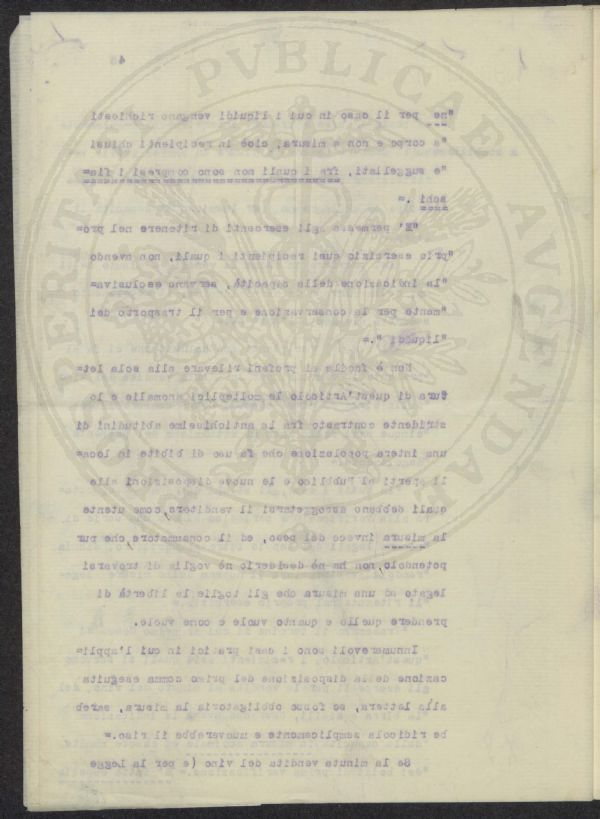 4
PROSPERITATI PVBLICAE AVGENDAE
"ne per il caso in cui i liquidi vengano richiesti
"a corpo e non a misura, cioè in recipienti chiusi
"e suggellati, fra i quali non sono compresi i fia=
schi .=
"E' permesso agli esercenti di ritenere nel pro=
"prio esercizio quei recipienti i quali, non avendo
"la indicazione della capacità, servano esclusiva=
"mente per la conservazione e per il trasporto dei
"liquidi ".=
Non è facile ai profani rilevare alla sola let=
tura di quest'Articolo le molteplici anomalie e lo
stridente contrasto fra le antichissime abitudini di
una intera popolazione che fa uso di bibite in loca=
li aperti al Pubblico e le nuove disposizioni alle
quali debbano assoggettarsi il venditore, come utente
la misura invece del peso, ed il consumatore, che pur
potendolo, non ha nè desiderio nè voglia di trovarsi
legato ad una misura che gli toglie la libertà di
prendere quello e quanto vuole e come vuole.
Innumerevoli sono i casi pratici in cui l'appli=
cazione della disposizione del primo comma eseguita
alla lettera, se fosse obbligatoria la misura, sareb
be ridicola semplicemente e muoverebbe il riso.=
Se la minuta vendita del vino (e per la Legge